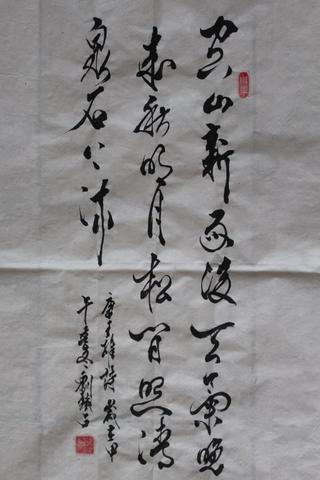 空山新雨後天氣晚
來秋明月松間照清
泉石上流
唐王維詩歲在甲
午冬劉